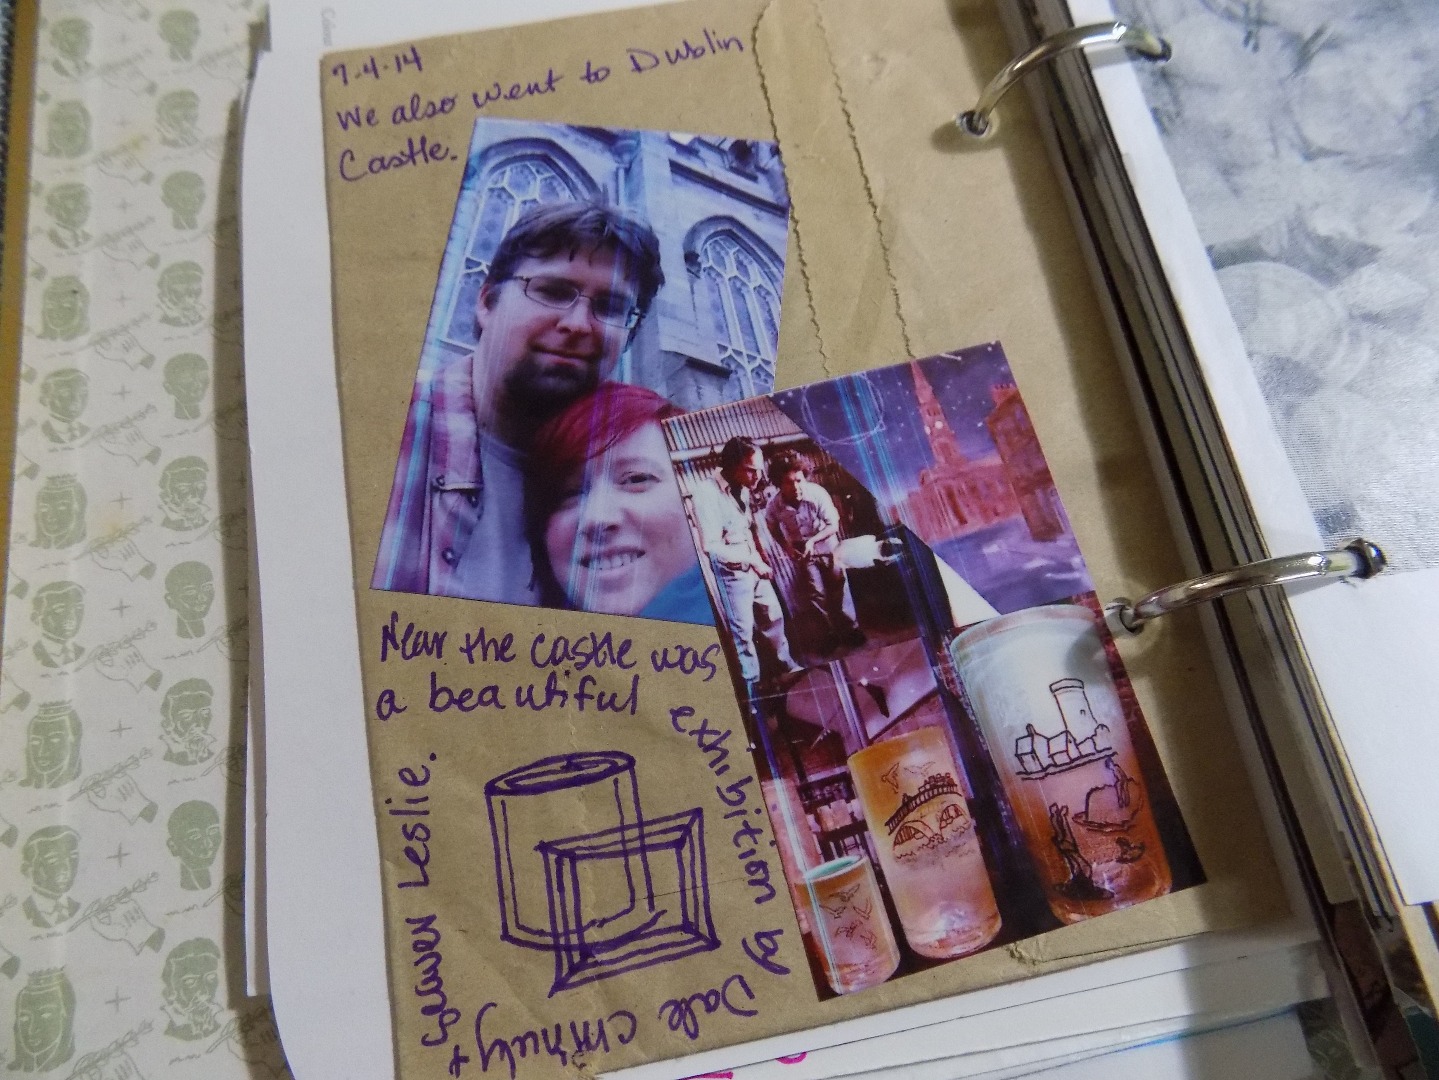 7.4.14
We also went to Dublin
Castle.
Near the castle was
a beautiful
exhibition by Dale Chihuly +
Seaver Leslie.